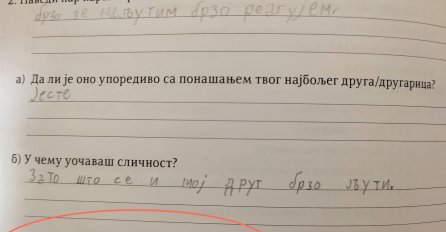 2. Наведи пар
брзо се наљутим брзо реагујем,
а) Да ли је оно упоредиво са понашањем твог најбољег друга/другарица?
Јесте
б) У чему уочаваш сличност?
Зато што се и мој друг брзо љути.